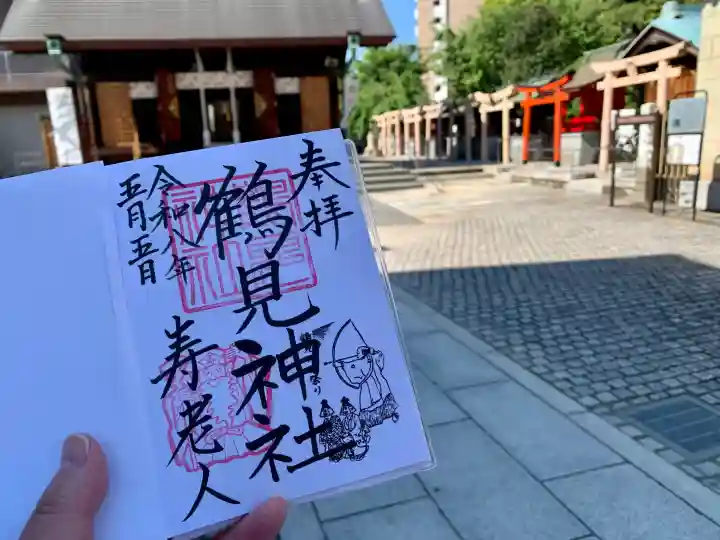 奉拝
鶴見神社
寿老人
令和八年
五月五日